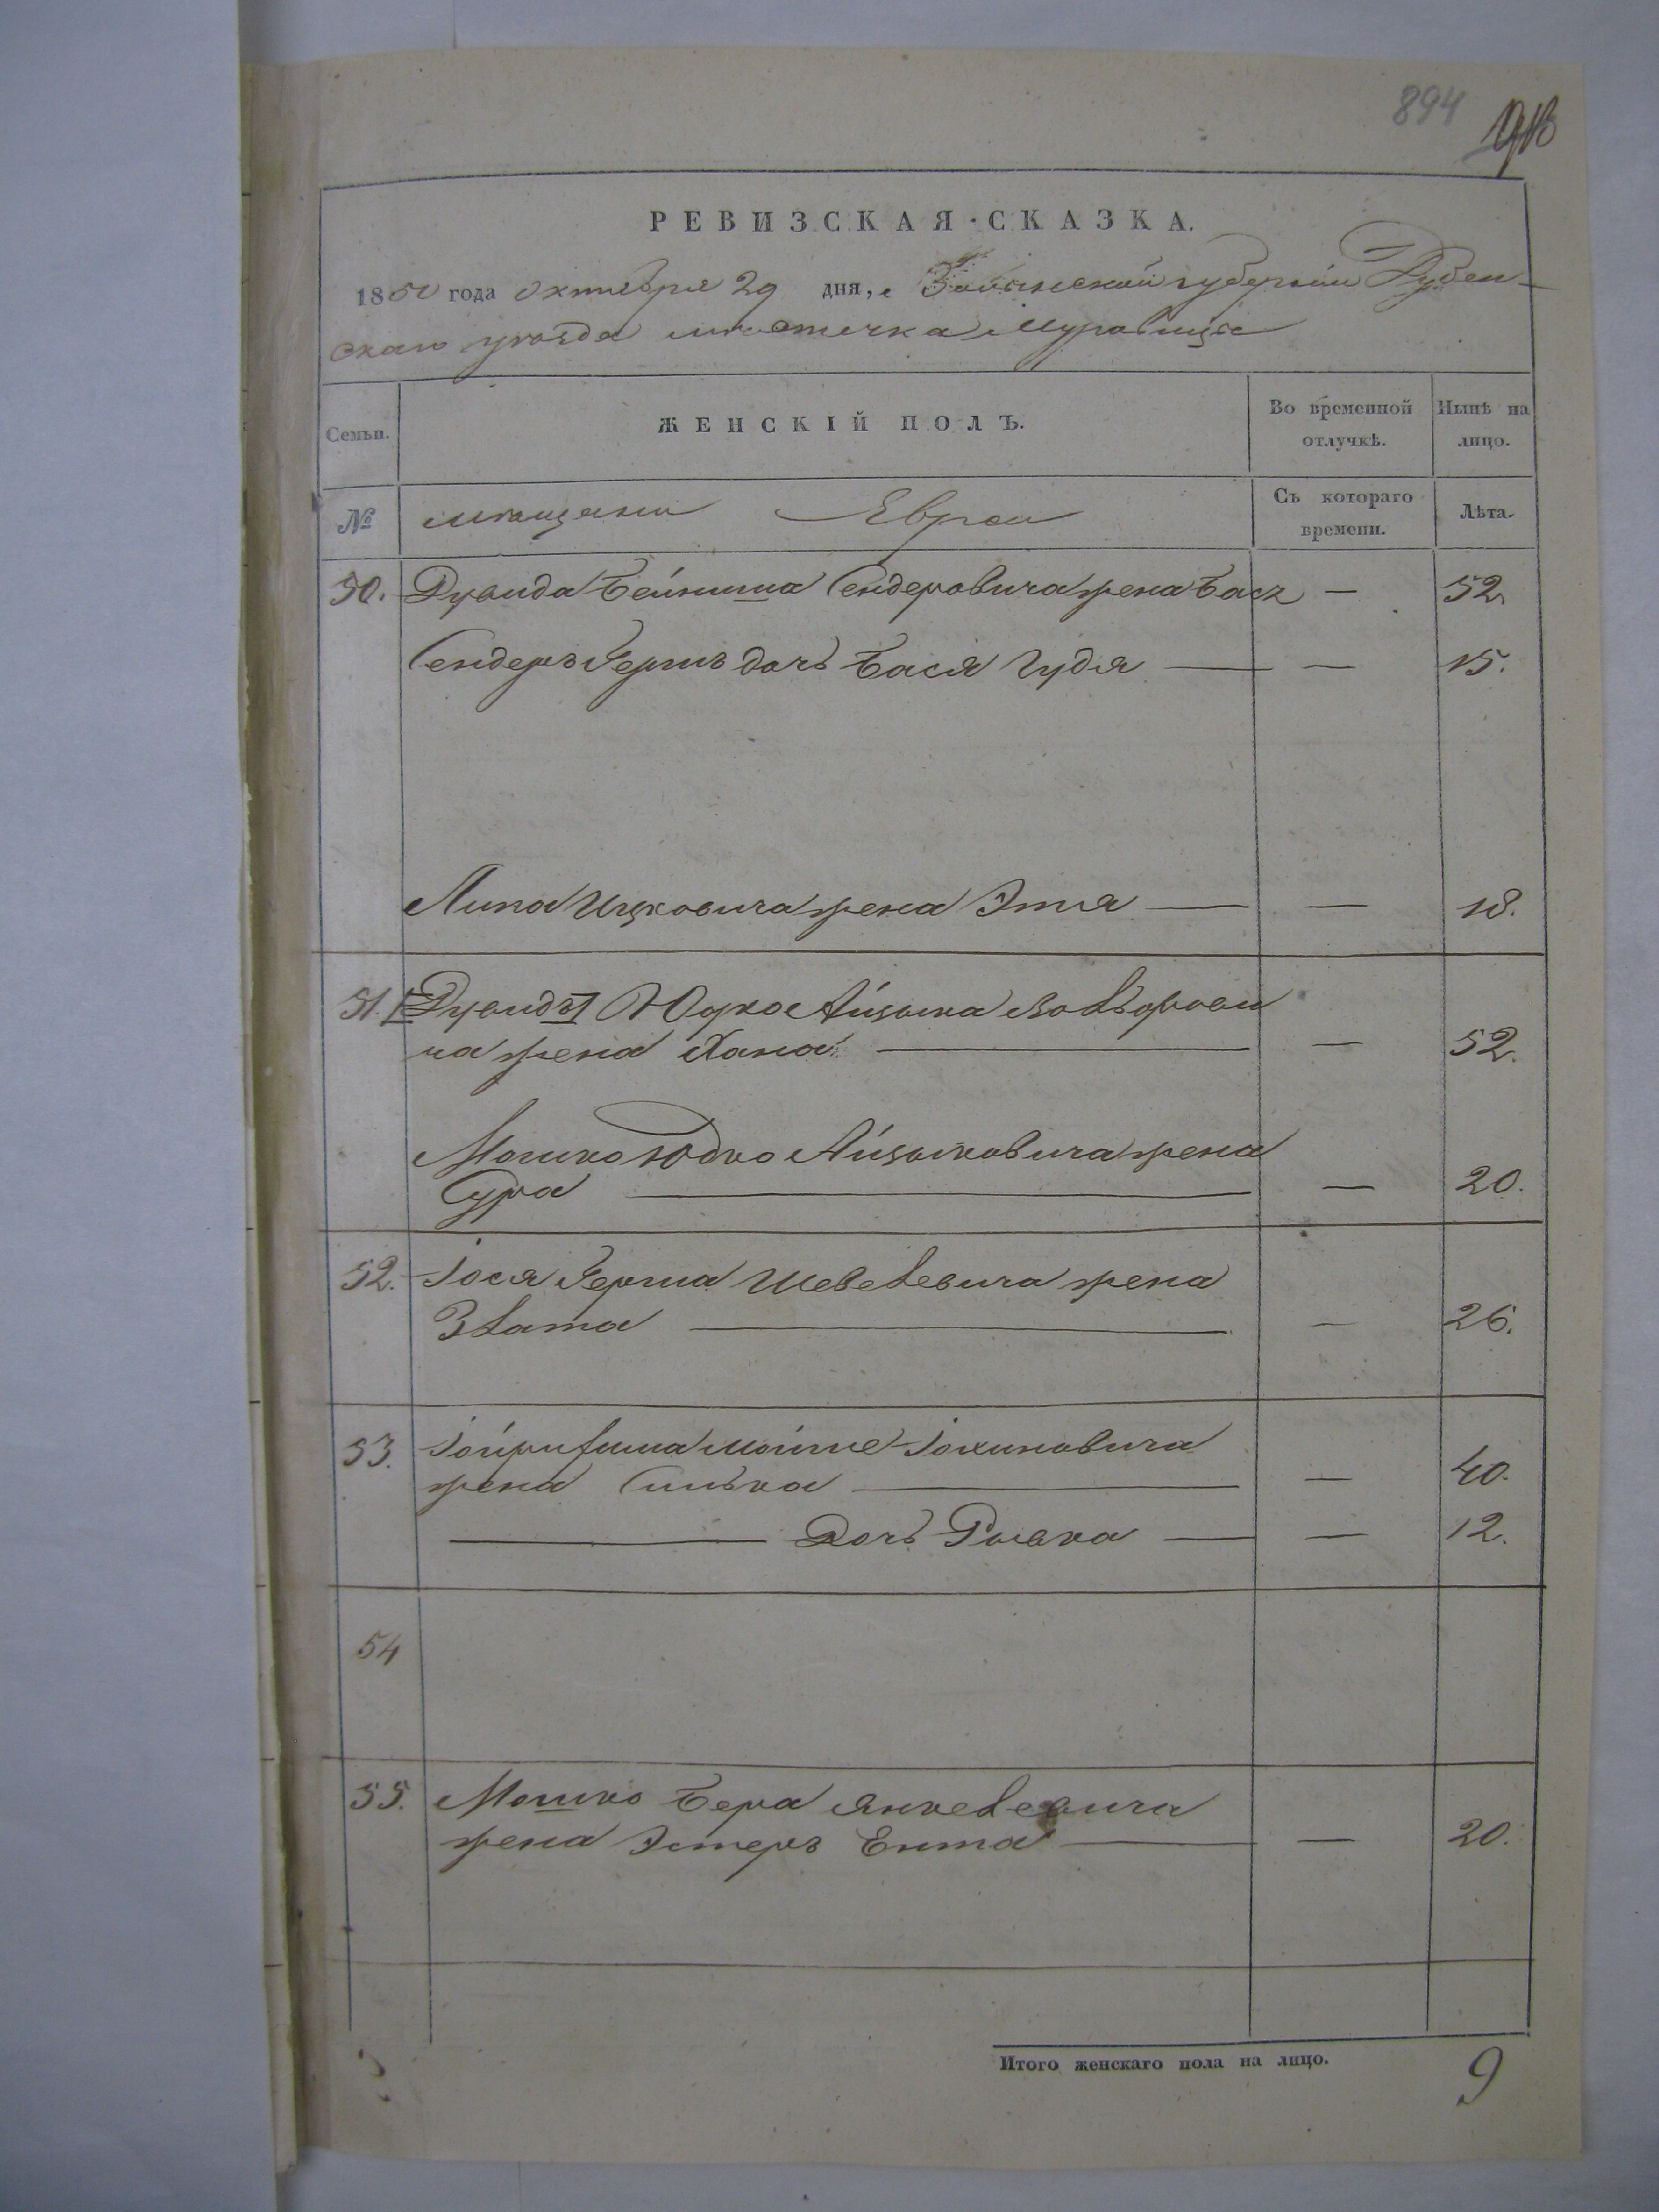 894
РЕВИЗСКАЯ СКАЗКА.
1850 года Октября 29 дня, Волынской губернiи Дубен-
скаго уѣзда мѣстечка Муравицъ
Семьи.
ЖЕНСКІЙ ПОЛЪ.
Во временной отлучкѣ.
Нынѣ на лицо.
№
мѣщани Евреи
Съ котораго времени.
Лѣта.
50. Дувида Бейниша Сендеровича жена Бася — 52
Сендеръ Гершъ дочь Бася Гудя — — 15.
Липа Ицковича жена Этя — — 18.
51. Дувидъ Юдко Айзыка Вольфови
ча жена Хана — — 52.
Мошко Юдко Айзыковича жена
Сура — — 20.
52. Іося Герша Шевелевича жена
Злата — — 26.
53. Мойше
жена Симка — — 40.
— Дочь Ривка — — 12.
54
55. Мошко Бера Янкелевича
жена Эстеръ Ента — — 20.
Итого женскаго пола на лицо. 9